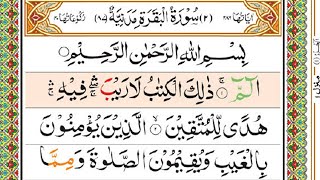 اٰيَاتُهَا ٢٨٦ (٢) سُوْرَةُ الْبَقَرَةِ مَدَنِيَّةٌ (٨٧) رُكُوْعَاتُهَا ٤٠
بِسْمِ اللهِ الرَّحْمٰنِ الرَّحِيْمِ
الٓمّٓ ۚ ذٰلِكَ الْكِتٰبُ لَا رَيْبَ ۛ فِيْهِ ۛ
هُدًى لِّلْمُتَّقِيْنَ ۙ الَّذِيْنَ يُؤْمِنُوْنَ
بِالْغَيْبِ وَيُقِيْمُوْنَ الصَّلٰوةَ وَمِمَّا